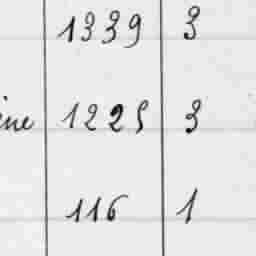 1339 3
ine 1225 3
116 1